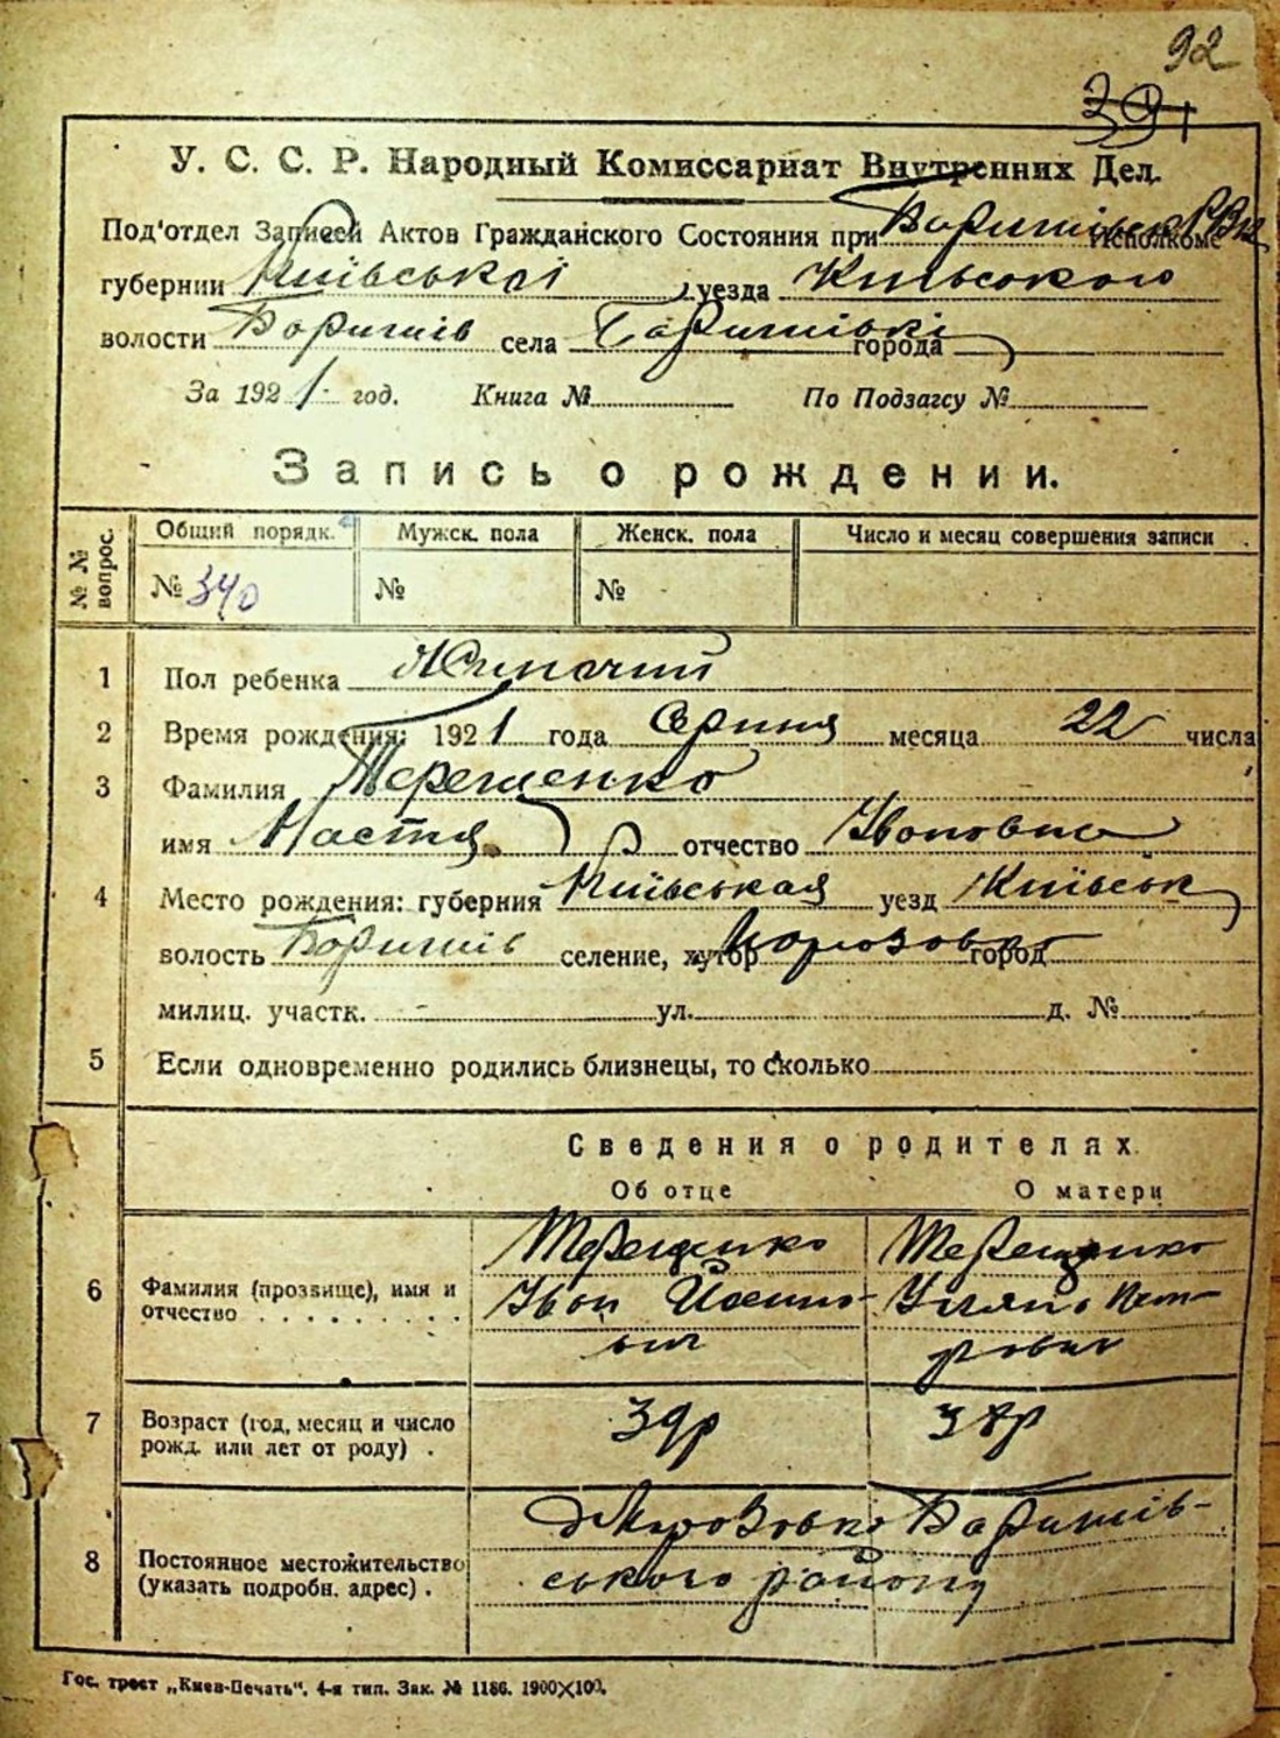 92
391
У. С. С. Р. Народный Комиссариат Внутренних Дел.
Под'отдел Записей Актов Гражданского Состояния при Баришівськ РВК Исполкоме
губернии Київської уезда Київського
волости Баришів села Баришівкі города
За 1921 год. Книга № По Подзагсу №
Запись о рождении.
№ № вопрос.
Общий порядк. Мужск. пола Женск. пола Число и месяц совершения записи
№ 340 № №
1 Пол ребенка Жиночий
2 Время рождения: 1921 года Серпня месяца 22 числа
3 Фамилия Терещенко
имя Настя отчество Ивановна
4 Место рождения: губерния Київськая уезд Київськ
волость Баришів селение, хутор Морозовка город
милиц. участк. ул. д. №
5 Если одновременно родились близнецы, то сколько
Сведения о родителях.
Об отце О матери
Терещенко Терещенко
6 Фамилия (прозвище), имя и отчество Иван Уляна Пет-
ровна
7 Возраст (год, месяц и число рожд. или лет от роду) . 39р 38р
8 Постоянное местожительство (указать подробн. адрес) . Морозовка Баришів-
ського району
Гос. трест „Киев-Печать“. 4-я тип. Зак. № 1186. 1900×100.